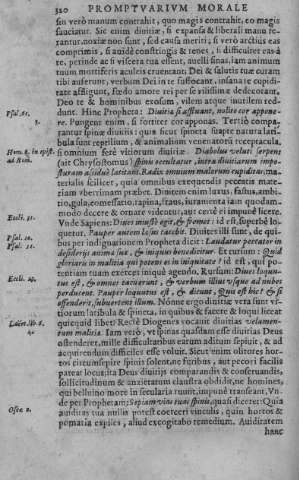 320 PROMPTVARIVM MORALE
sin verò manum contrahit, quo magis contrahit, eo magis
sauciatur. Sic enim diuitiæ, si expansa & liberali manu re-
tantur, noxiæ non sunt, sed causa meriti; si verò arctius eas
comprimis, si auidè constringis & tenes, si difficulter eas à
te, perinde ac si viscera tua ellent, auelli sinas, iam animum
tuum mortiferè aculeis cruentant: Dei & salutis tuæ curam
tibi auferunt, verbum Dei in te suffocant, insana te cupidi-
tate affigunt, fœdo amore rei per se vilissimæ dedecorant.
Deo te & hominibus exosum, vilem atque inutilem red-
dunt. Hinc Propheta: Diuitiæ si affluant, nolite cor appone-
re. Pungent enim, si fortiter cor apponas. Tertiò compa-
rantur spinæ diuitiis: quia sicut spineta suapte natura lati-
bula sunt reptilium, & animalium venenatorū receptacula,
si omnium ferè vitiorum diuitiæ. Diabolus velut serpens
(ait Chrysostomus) spinis occultatur, intra diuitiarum impo-
sturam assiduè latitans. Radix omnium malorum cupiditas, ma-
terialis scilicet, quia omnibus exequendis peccatis mate-
riam vberrimam præbet. Diuitem enim luxus, fastus, ambi-
tio, gula, comessatio, rapina, fraus, iuramenta iam quodam-
modo decere & ornare videntur, aut certè ei impunè licere.
Vnde Sapiens: Diues iniustè egit, & fremet: id est, superbè lo-
quetur. Pauper autem læsus tacebit. Diuites illi sunt, de qui-
bus per indignationem Propheta dicit: Laudatur peccator in
desiderijs animæ suæ, & iniquus benedicitur. Et rursum: Quid
gloriaris in malitia qui potens es in iniquitate? id est, qui po-
tentiam tuam exerces iniquè agendo. Rursum: Diues loquu-
tus est, & omnes tacuerunt, & verbum illius vsque ad nubes
perducent. Pauper loquutus est, & dicunt, Quis est hic? & si
offenderit, subuertent illum. Nonne ergo diuitiæ vera sunt vi-
tiorum latibula & spineta, in quibus & facere & loqui liceat
quicquid liber? Rectè Diogenes vocauit diuitias velamen-
tum malitiæ. Iam verò, vt spinas quasdam esse diuitias Deus
ostenderet, mille difficultatibus earum aditum sepiuit, & ad
acquirendum difficiles esse voluit. Sicut enim olitores hor-
tos circumsepire spinis solent, ne furibus, aut pecori facilis
pateat locus; ita Deus diuitijs comparandis & conseruandis,
sollicitudinum & anxietatum claustra obdidit, ne homines,
qui belluino more in secularia ruunt, impunè transeant. Vn-
de per Prophetam: Sepiam vias tuas spinis, quasi diceret: Quia
auditas tua nullis potest coerceri vinculis, quin hortos &
pomaria expiles, aliud excogitabo remedium. Auiditatem
hanc
Psal. 61.
3.
Hom. 8. in epist.
ad Rom.
Eccli. 31.
Psal. 10.
Psal. 51.
Eccli. 29.
Laërt. lib. 6.
Osee 2.